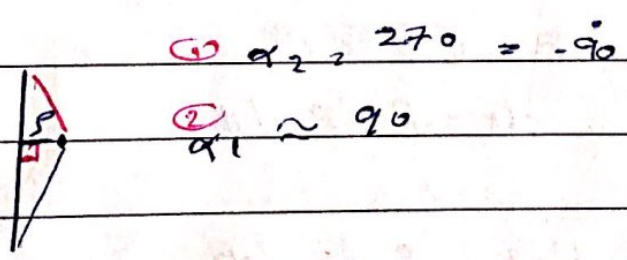 ① α₂ = 270 = -90°
ρ
② α₁ ≈ 90